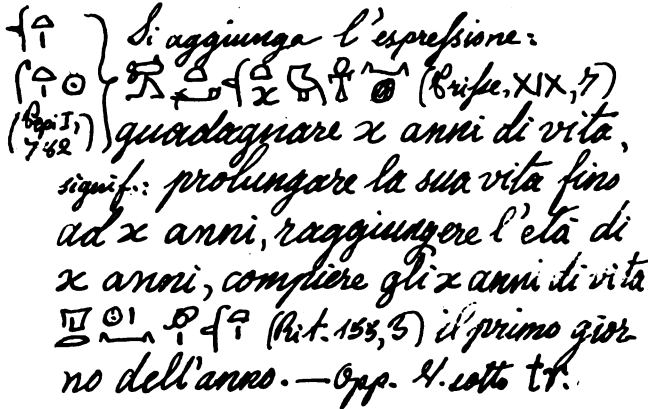 Si aggiunga l'espressione:
(Prisse, XIX, 7)
(Pepi I,
782)
guadagnare x anni di vita,
signif.: prolungare la sua vita fino
ad x anni, raggiungere l'età di
x anni, compiere gli x anni di vita
(Rit. 155, 3) il primo gior
no dell'anno. — Opp. V. sotto tr.